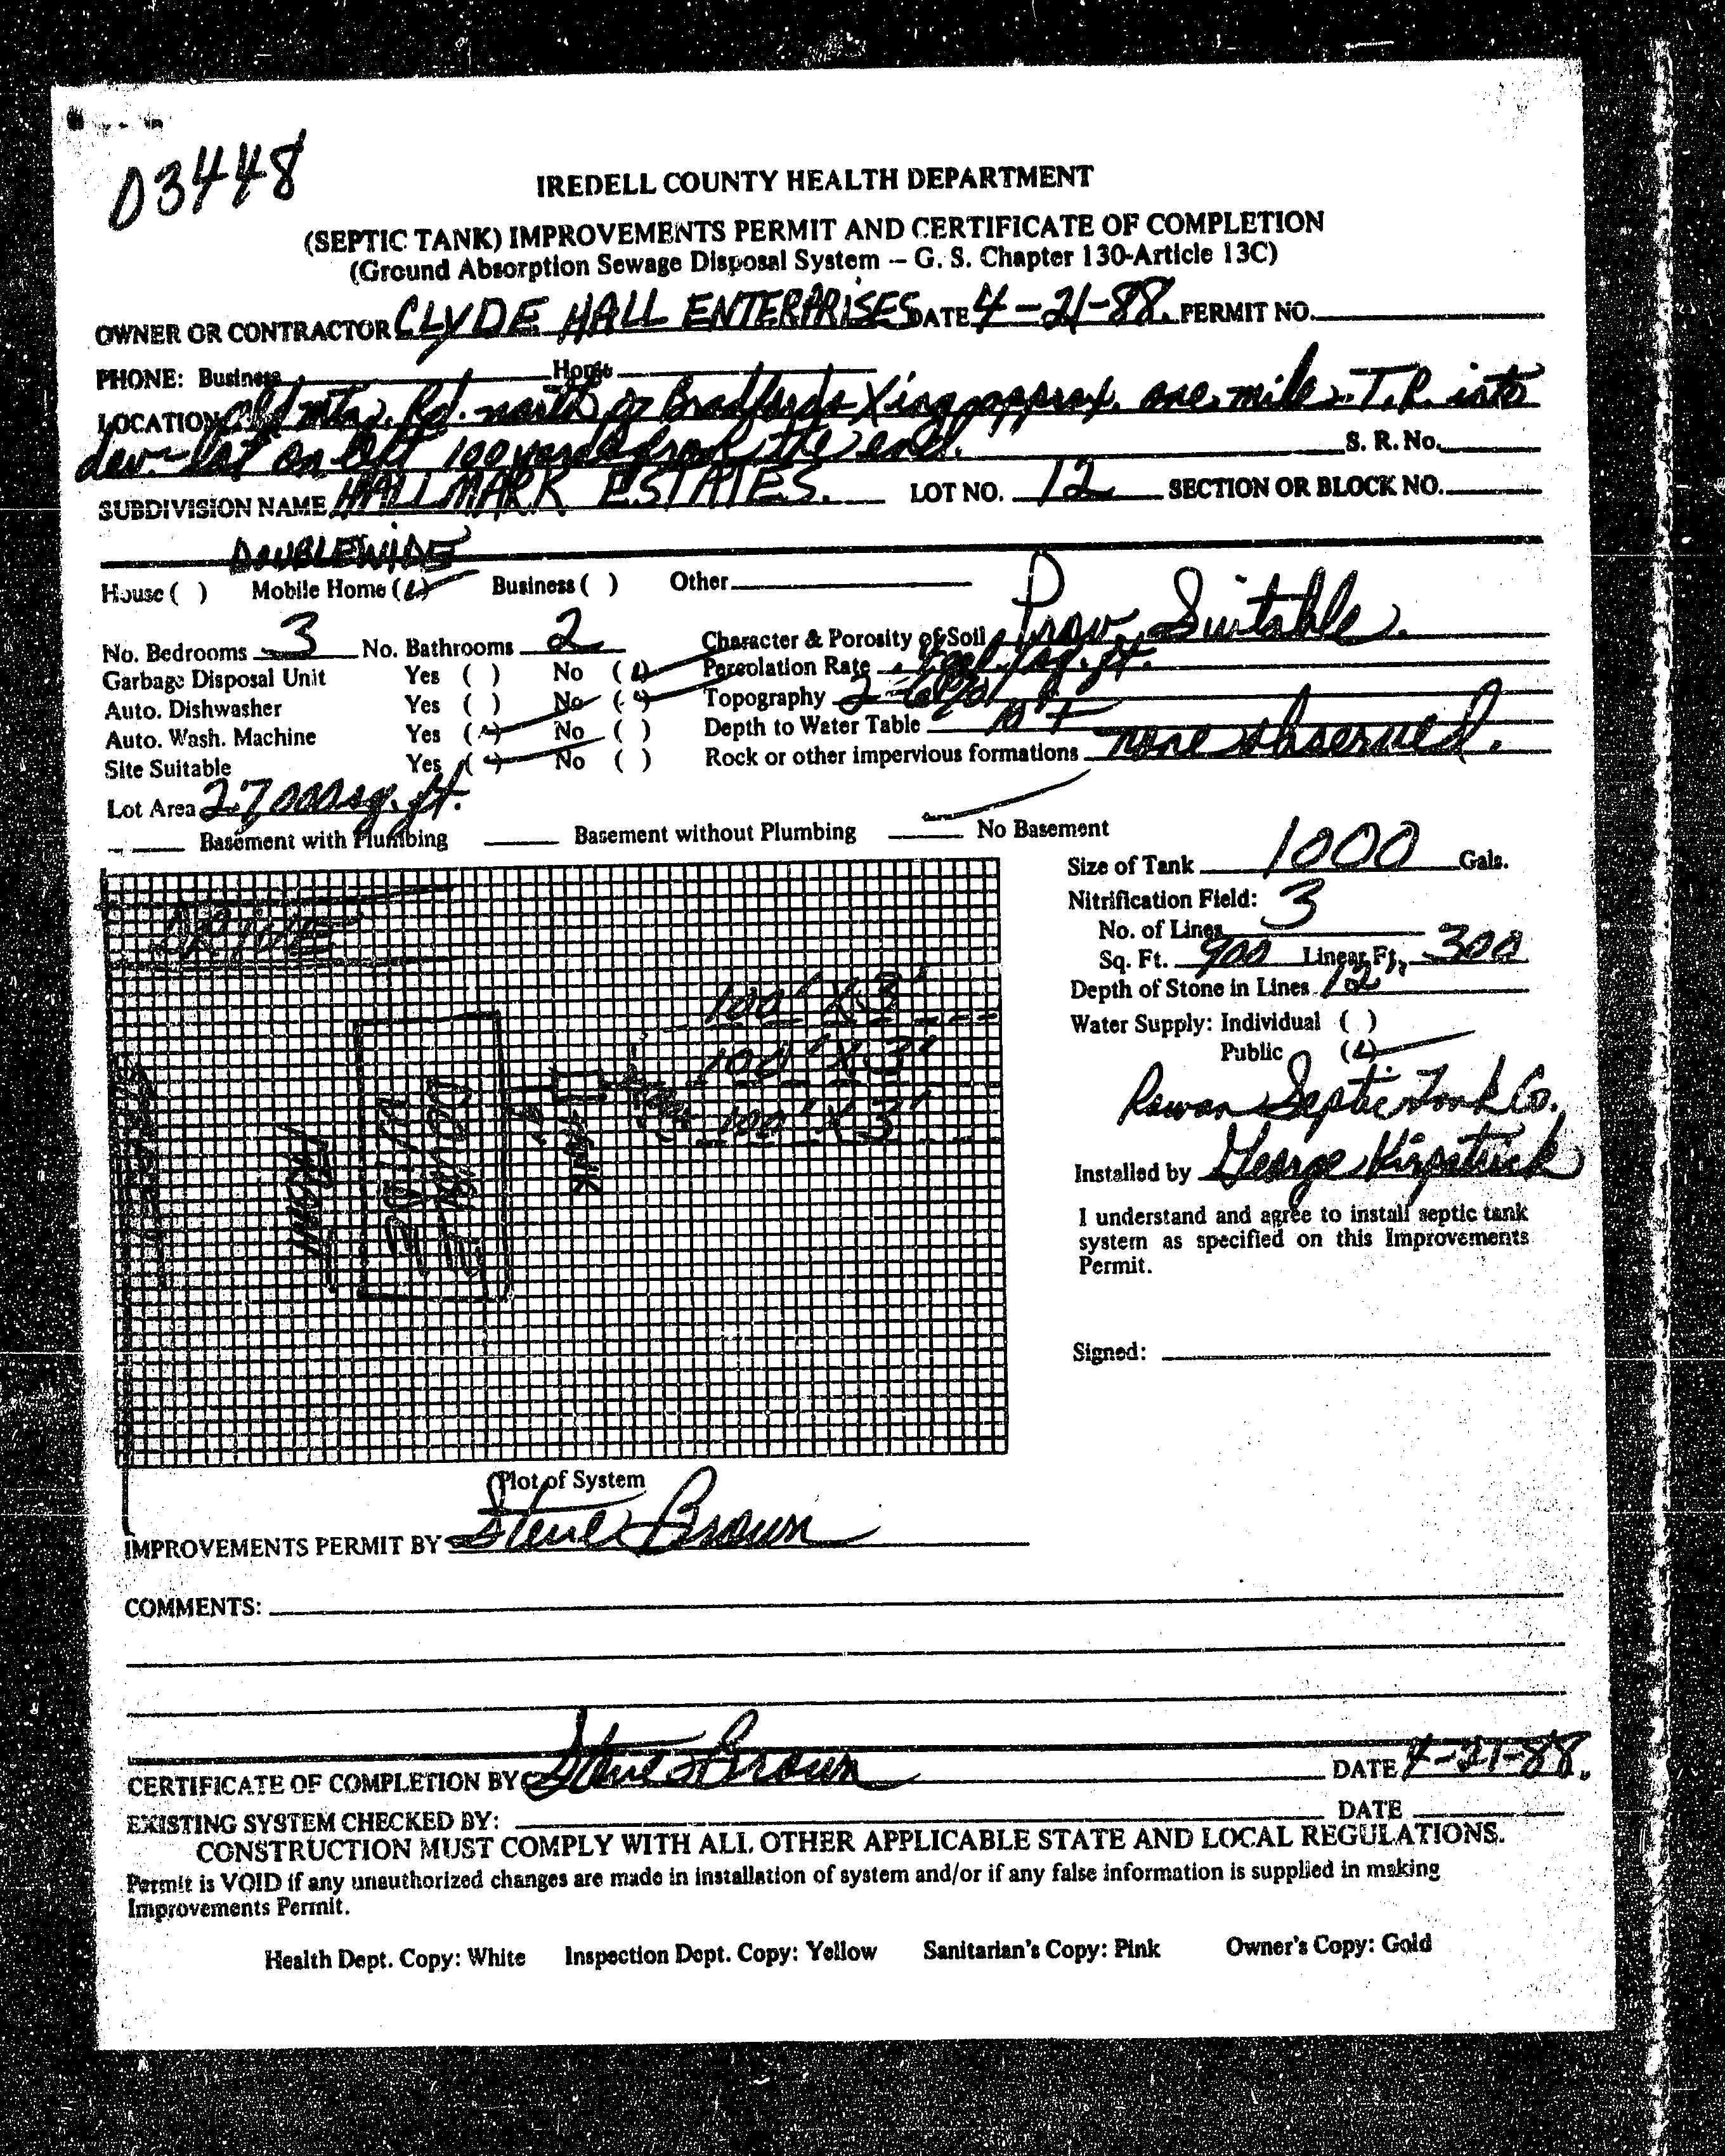 D3448
IREDELL COUNTY HEALTH DEPARTMENT
(SEPTIC TANK) IMPROVEMENTS PERMIT AND CERTIFICATE OF COMPLETION
(Ground Absorption Sewage Disposal System – G. S. Chapter 130-Article 13C)
OWNER OR CONTRACTOR CLYDE HALL ENTERPRISES DATE 4-21-88. PERMIT NO.
PHONE: Business Home
LOCATION Old Mtn. Rd. north of Bradfords Xing approx. one mile. T.R. into
dev. - lot on left 100 yards from the end. S. R. No.
SUBDIVISION NAME HALLMARK ESTATES. LOT NO. 12 SECTION OR BLOCK NO.
DOUBLEWIDE
House ( ) Mobile Home (✓) Business ( ) Other
No. Bedrooms 3 No. Bathrooms 2 Character & Porosity of Soil Prov. Suitable.
Garbage Disposal Unit Yes ( ) No (✓) Percolation Rate gal/sq. ft.
Auto. Dishwasher Yes ( ) No (✓) Topography 2-6%
Auto. Wash. Machine Yes (✓) No ( ) Depth to Water Table 10'+
Site Suitable Yes (✓) No ( ) Rock or other impervious formations none observed.
Lot Area 27000 sq. ft.
Basement with Plumbing Basement without Plumbing ✓ No Basement
Size of Tank 1000 Gals.
Nitrification Field:
No. of Lines 3
Sq. Ft. 900 Linear Ft. 300
Depth of Stone in Lines 12"
Water Supply: Individual ( )
Public (✓)
Rowan Septic Tank Co.
Installed by George Kirpatrick
I understand and agree to install septic tank
system as specified on this Improvements
Permit.
Signed:
DRIVE
100' X 3'
100' X 3'
100' X 3'
FRONT
TANK
Plot of System
IMPROVEMENTS PERMIT BY Steve Brown
COMMENTS:
CERTIFICATE OF COMPLETION BY Steve Brown DATE 4-21-88.
EXISTING SYSTEM CHECKED BY: DATE
CONSTRUCTION MUST COMPLY WITH ALL OTHER APPLICABLE STATE AND LOCAL REGULATIONS.
Permit is VOID if any unauthorized changes are made in installation of system and/or if any false information is supplied in making
Improvements Permit.
Health Dept. Copy: White Inspection Dept. Copy: Yellow Sanitarian's Copy: Pink Owner's Copy: Gold